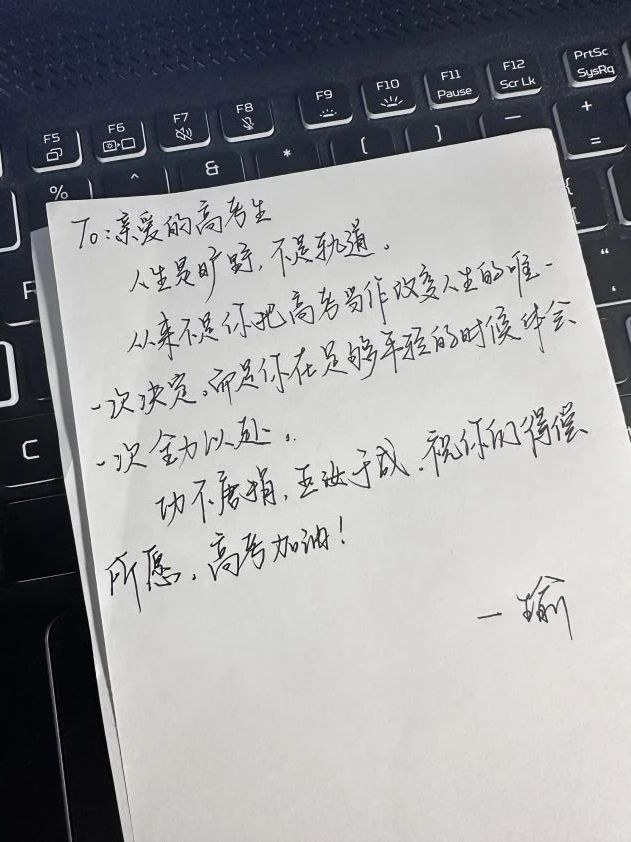 F5
F6
F7
F8
F9
F10
F11
Pause
F12
Scr Lk
PrtSc
SysRq
%
^
&
*
(
)
—
+
=
{
[
F
C
"
'
To:亲爱的高考生
人生是旷野,不是轨道.
从来不是你把高考当作改变人生的唯一
一次决定,而是你在足够年轻的时候体会
一次全力以赴。
功不唐捐,玉汝于成.祝你们得偿
所愿,高考加油!
一瑜